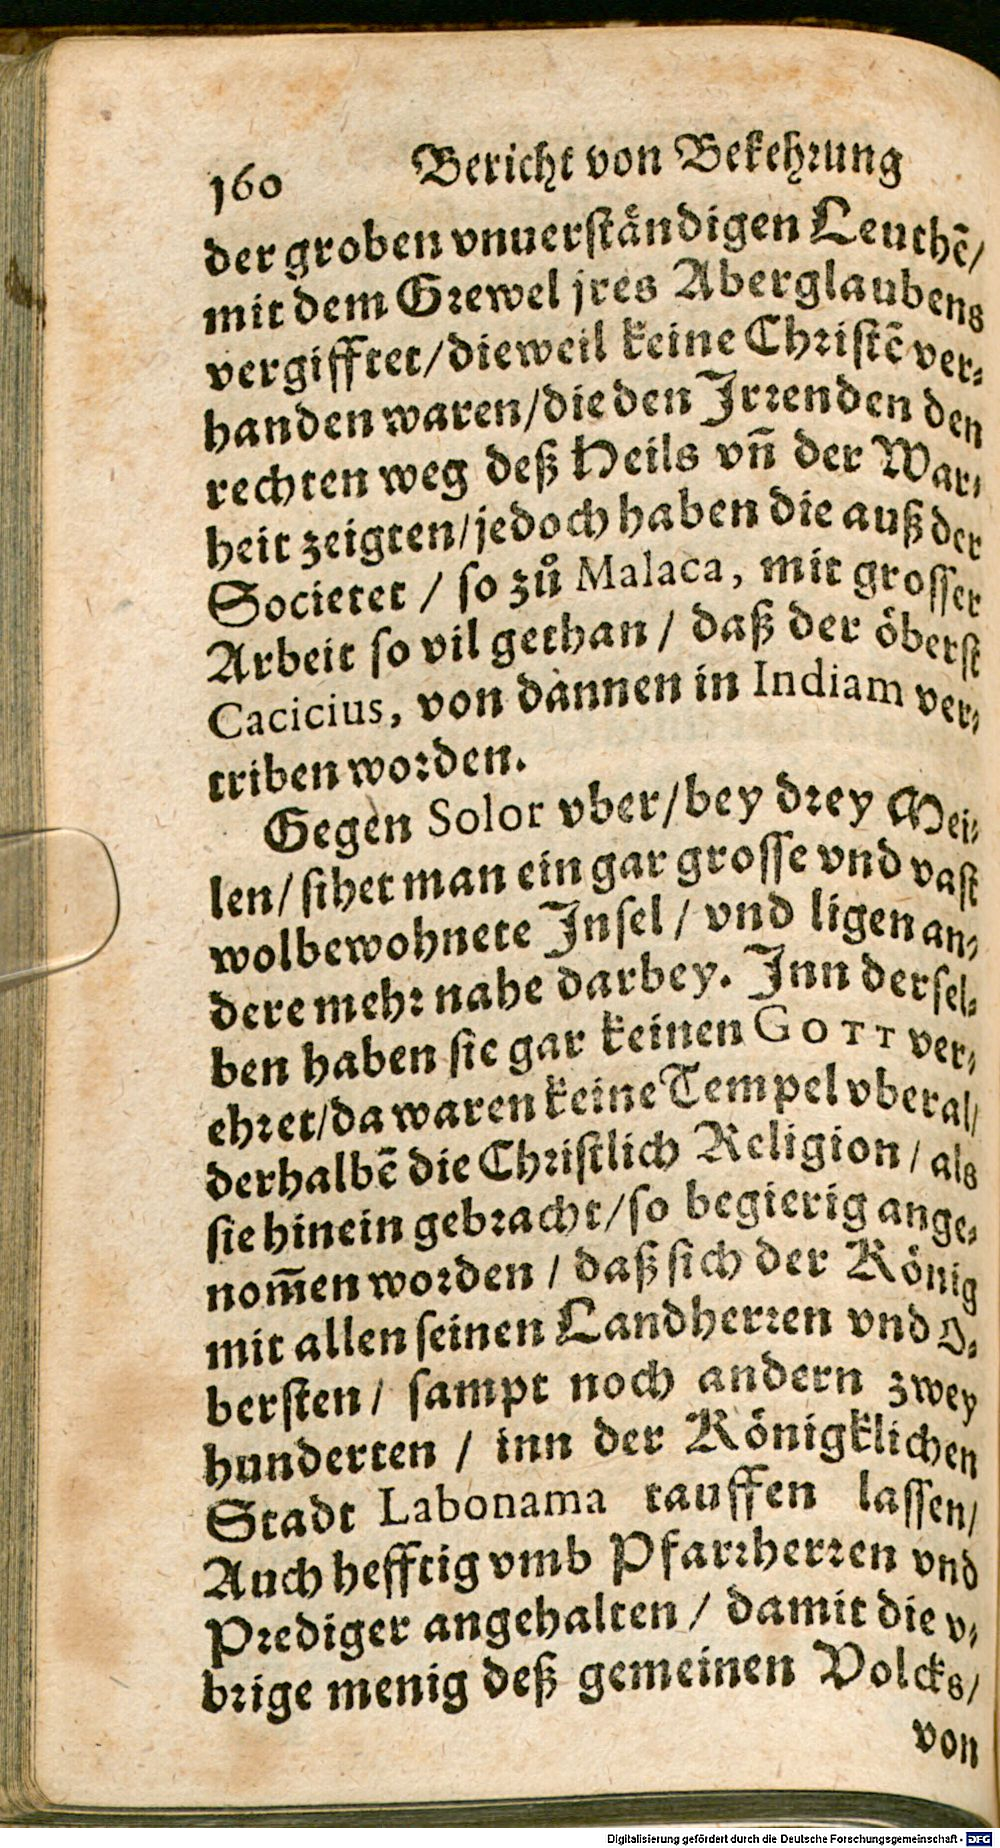 160 Bericht von Bekehrung
der groben vnuerſtändigen Leuthẽ/
mit dem Grewel jres Aberglaubens
vergifftet/dieweil keine Chriſtẽ ver⸗
handen waren/die den Jrrenden den
rechten weg deß Heils vñ der War⸗
heit zeigten/jedoch haben die auß der
Societet / ſo zů Malaca, mit groſſer
Arbeit ſo vil gethan / daß der öberſt
Cacicius, von dannen in Indiam ver⸗
triben worden.
Gegen Solor vber/bey drey Mei⸗
len/ ſihet man ein gar groſſe vnd vaſt
wolbewohnete Jnſel / vnd ligen an⸗
dere mehr nahe darbey. Jnn derſel⸗
ben haben ſie gar keinen GOTT ver⸗
ehret/da waren keine Tempel vberal/
derhalbẽ die Chriſtlich Religion / als
ſie hinein gebracht/ſo begierig ange⸗
nom̃en worden / daß ſich der König
mit allen ſeinen Landherren vnd O⸗
berſten/ ſampt noch andern zwey
hunderten / inn der Königklichen
Stadt Labonama tauffen laſſen/
Auch hefftig vmb Pfarrherren vnd
Prediger angehalten / damit die v⸗
brige menig deß gemeinen Volcks/
von
Digitalisierung gefördert durch die Deutsche Forschungsgemeinschaft - DFG